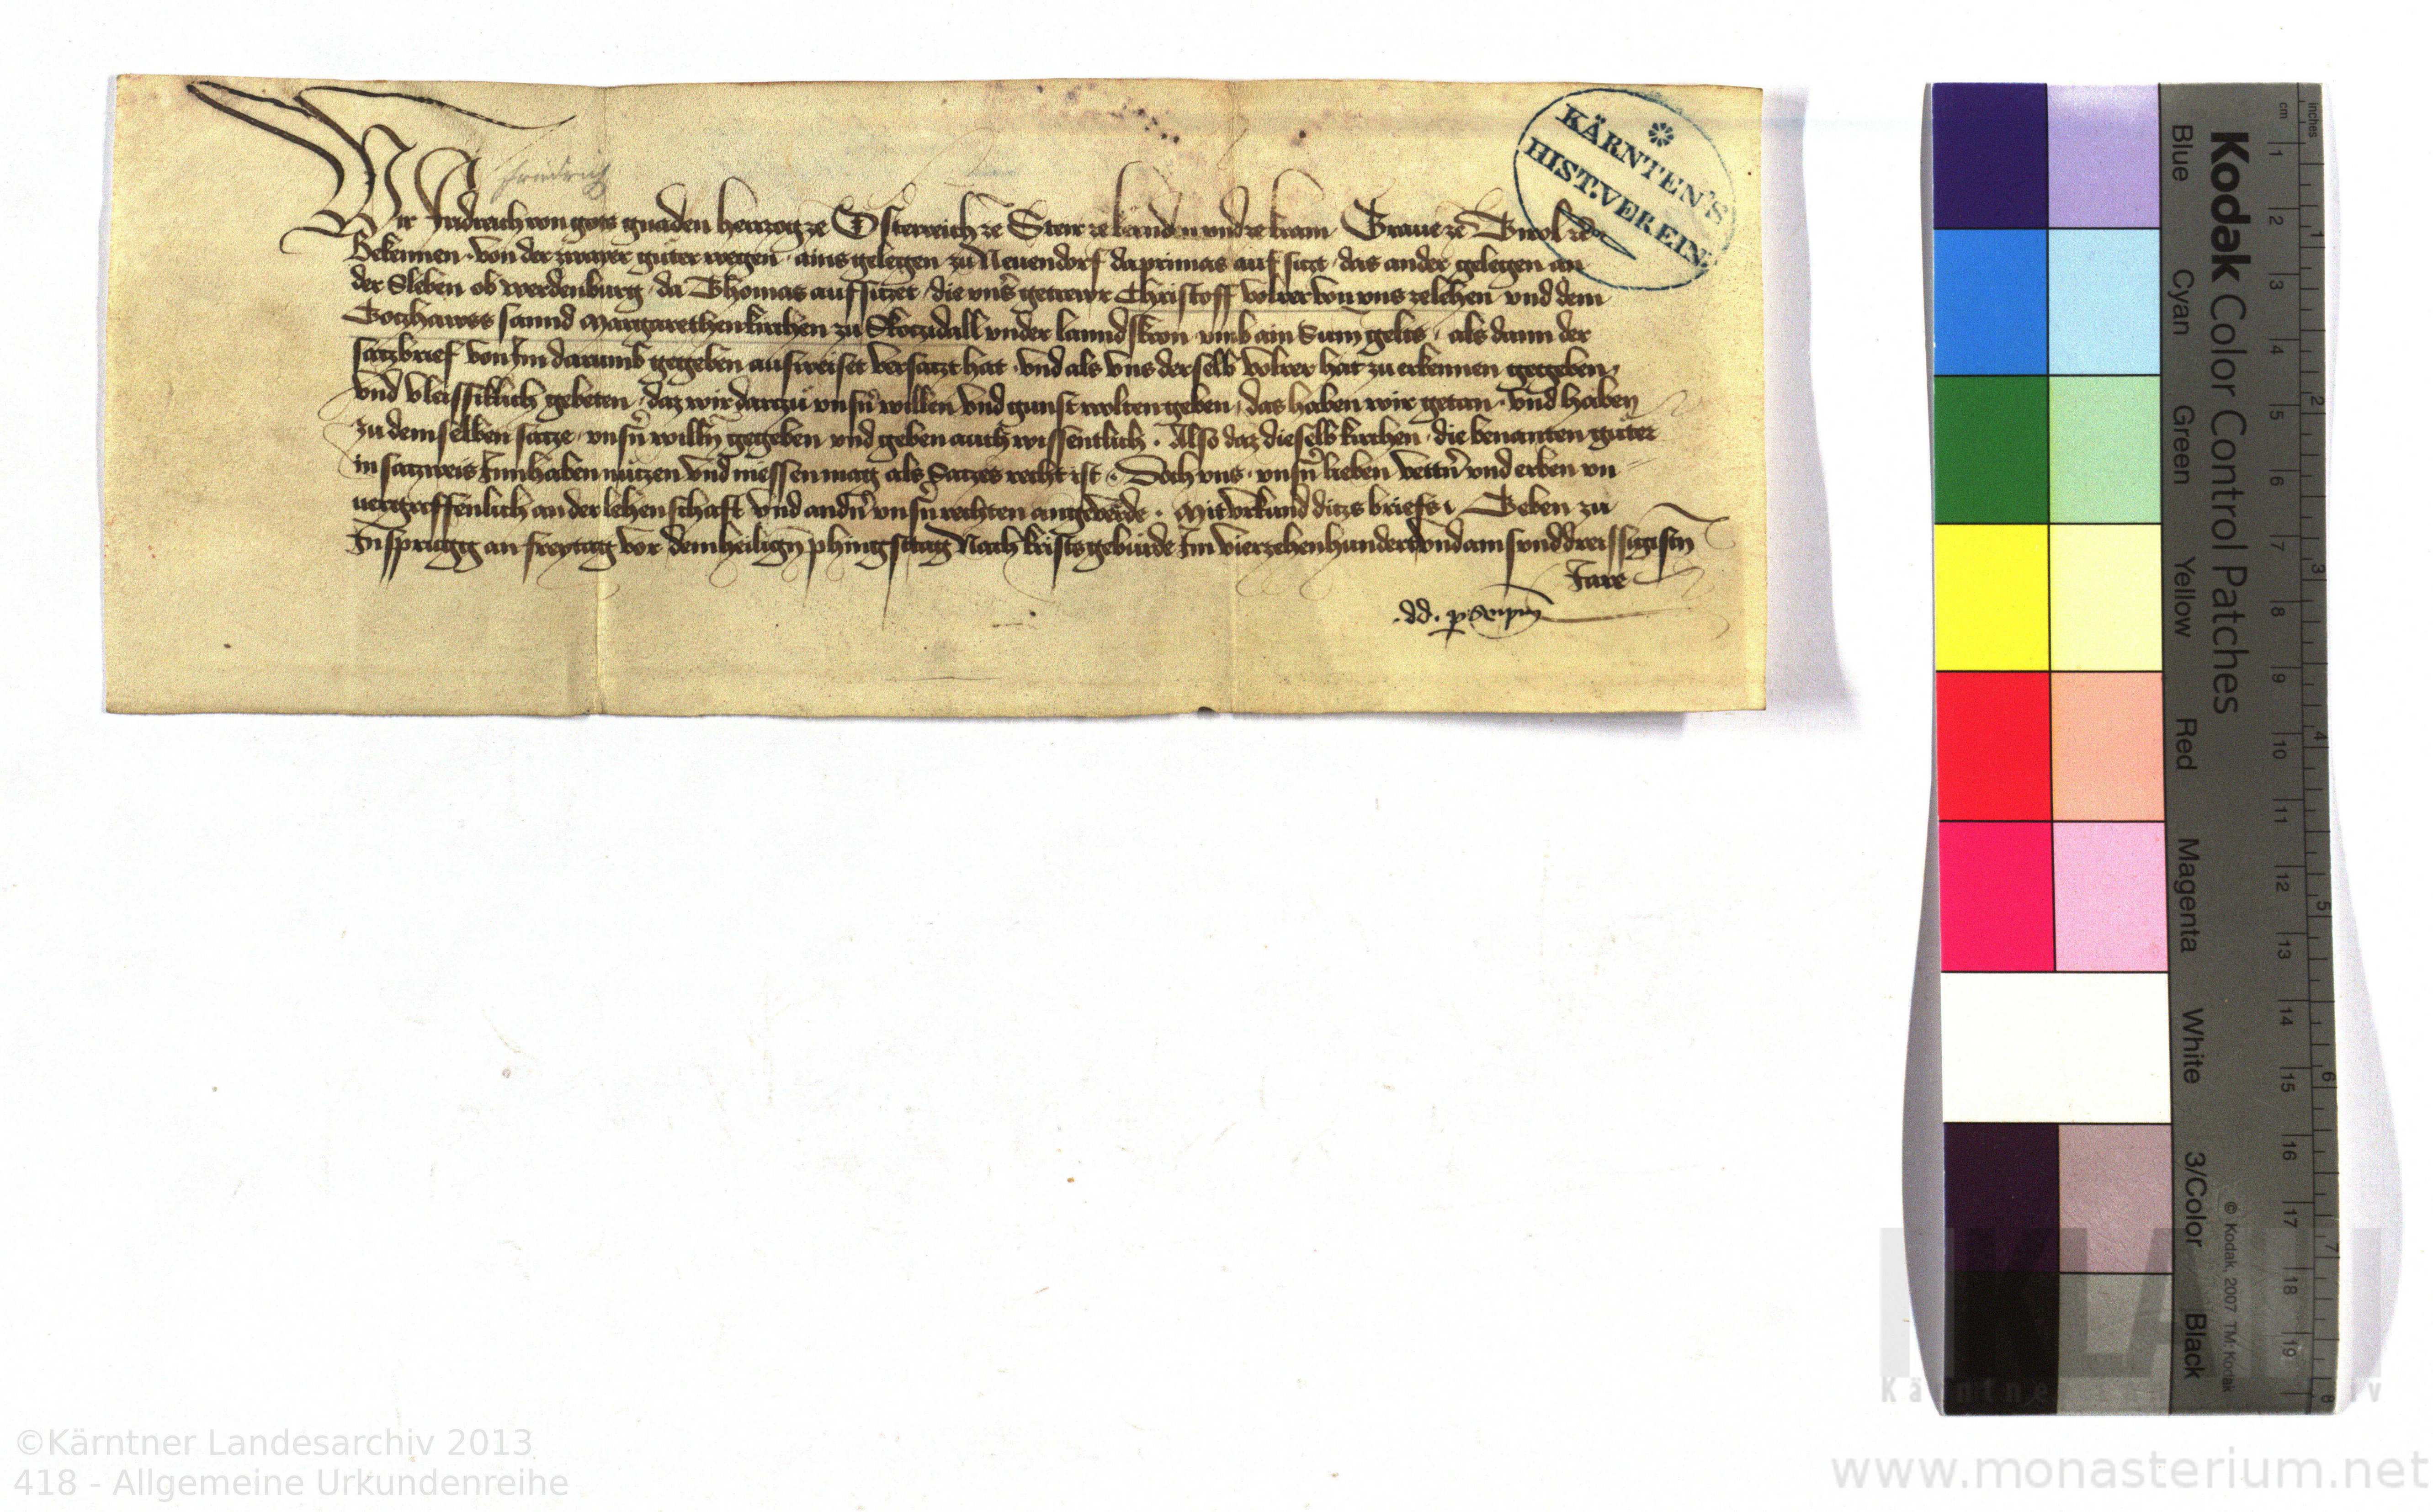 Friedrich
Wir Fridreich von gots gnaden hertzog ze Österreich ze Steir ze kernden und ze krain Graue ze Tirol etc
Bekennen von der zwayer güter wegen ains gelegen zu Neuendorf da primas auf siczt das ander gelegen an
der Sleben ob werdenburg da Thomas auf siczet die unser getrewr Christoff von uns ze lehen und dem
Gotzhawss sannd Margarethenkirchen zu under lanndskron umb ain Sum gelts als dann der
satzbrief von Im darumb gegeben ausweiset versatzt hat und als uns derselb hat zu erkennen gegeben
und vleissiklich gebeten daz wir darzu unsern willen und gunst wolten geben das haben wir getan und haben
zu demselben satze unsern willen gegeben und geben auch wissentlich Also daz dieselb kirchen die benanten güter
in satzweis Innhaben nutzen und niessen mag als Satzes recht ist Doch uns unsern lieben vettern und erben un
uergriffenlich an der lehenschaft und andern unsern rechten angeverde Mit urkund ditzs briefs Geben zu
Insprugg an freytag vor dem heiligen phingsttag Nach krists gebürde Im vierzehenhundert und ains und dreissigisten
Jare
.dd. p
KÄRNTEN'S
HIST.VEREIN.
Kodak Color Control Patches
Blue Cyan Green Yellow Red Magenta White 3/Color Black
© Kodak, 2007 TM: Kodak
inches 1 2 3 4 5 6 7 8
cm 1 2 3 4 5 6 7 8 9 10 11 12 13 14 15 16 17 18 19
©Kärntner Landesarchiv 2013
418 - Allgemeine Urkundenreihe
www.monasterium.net